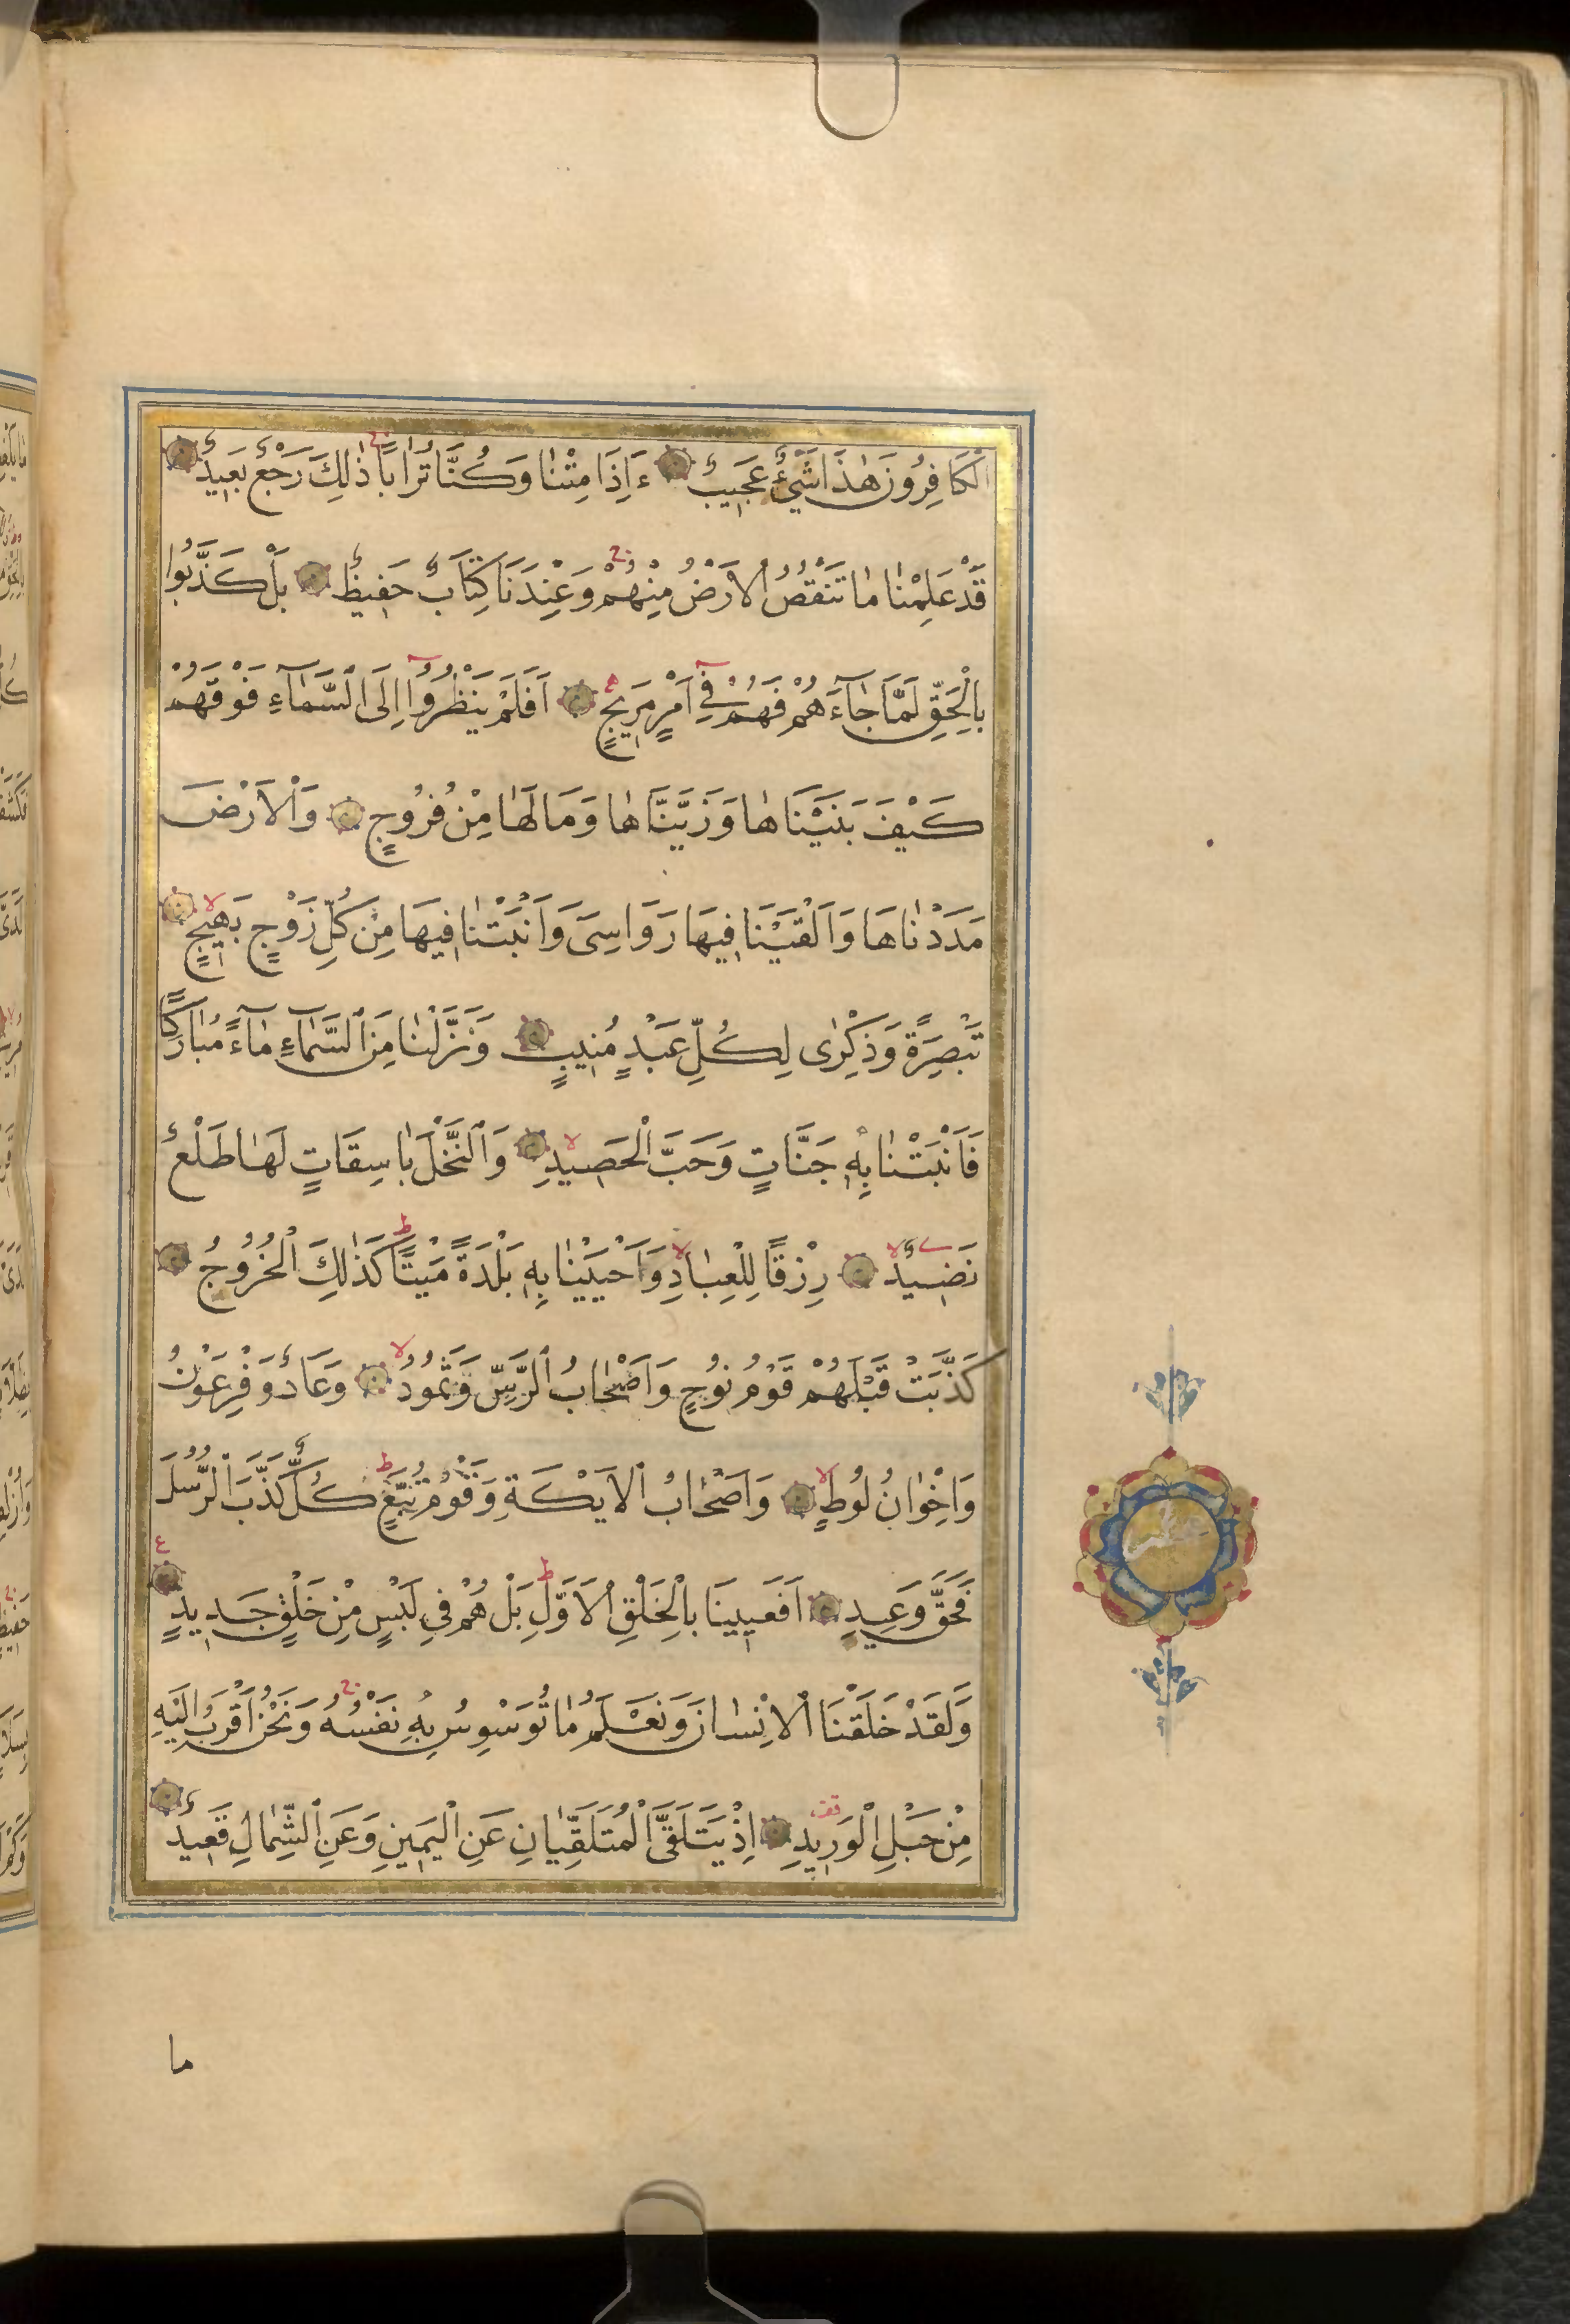 الْكَافِرُونَ هٰذَا شَيْءٌ عَجِيبٌ ءَاِذَا مِتْنٰا وَكُنَّا تُرٰابًا ذٰلِكَ رَجْعٌ بَعِيدٌ
قَدْ عَلِمْنٰا مٰا تَنْقُصُ الْاَرْضُ مِنْهُمْ وَعِنْدَنَا كِتَابٌ حَفِيظٌ بَلْ كَذَّبُوا
بِالْحَقِّ لَمَّا جٰآءَهُمْ فَهُمْ فِي اَمْرٍ مَرِيجٍ اَفَلَمْ يَنْظُرُوآ اِلَى السَّمٰآءِ فَوْقَهُمْ
كَيْفَ بَنَيْنَاهٰا وَزَيَّنَّاهٰا وَمَا لَهٰا مِنْ فُرُوجٍ وَالْاَرْضَ
مَدَدْنٰاهَا وَاَلْقَيْنَا فِيهَا رَوَاسِىَ وَاَنْبَتْنٰا فِيهَا مِنْ كُلِّ زَوْجٍ بَهِيجٍ
تَبْصِرَةً وَذِكْرٰى لِكُلِّ عَبْدٍ مُنِيبٍ وَنَزَّلْنٰا مِنَ السَّمٰآءِ مٰآءً مُبٰارَكًا
فَاَنْبَتْنٰا بِهِ جَنَّاتٍ وَحَبَّ الْحَصِيدِ وَالنَّخْلَ بٰاسِقَاتٍ لَهٰا طَلْعٌ
نَضِيدٌ رِزْقًا لِلْعِبٰادِ وَاَحْيَيْنٰا بِهِ بَلْدَةً مَيْتًا كَذٰلِكَ الْخُرُوجُ
كَذَّبَتْ قَبْلَهُمْ قَوْمُ نُوحٍ وَاَصْحٰابُ الرَّسِّ وَثَمُودُ وَعَادٌ وَفِرْعَوْنُ
وَاِخْوٰانُ لُوطٍ وَاَصْحٰابُ الْاَيْكَةِ وَقَوْمُ تُبَّعٍ كُلٌّ كَذَّبَ الرُّسُلَ
فَحَقَّ وَعِيدِ اَفَعَيِينَا بِالْخَلْقِ الْاَوَّلِ بَلْ هُمْ فِي لَبْسٍ مِنْ خَلْقٍ جَدِيدٍ
وَلَقَدْ خَلَقْنَا الْاِنْسٰانَ وَنَعْلَمُ مٰا تُوَسْوِسُ بِهِ نَفْسُهُ وَنَحْنُ اَقْرَبُ اِلَيْهِ
مِنْ حَبْلِ الْوَرِيدِ اِذْ يَتَلَقَّى الْمُتَلَقِّيٰانِ عَنِ الْيَمِينِ وَعَنِ الشِّمٰالِ قَعِيدٌ
ما